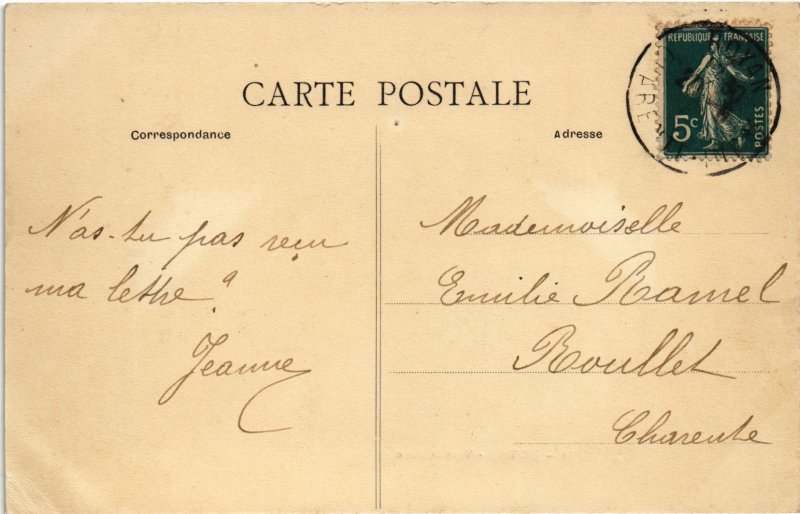 CARTE POSTALE
Correspondance
Adresse
REPUBLIQUE FRANÇAISE
5c
POSTES
N'as-tu pas reçu
ma lettre ?
Jeanne
Mademoiselle
Emilie Ramel
Roullet
Charente